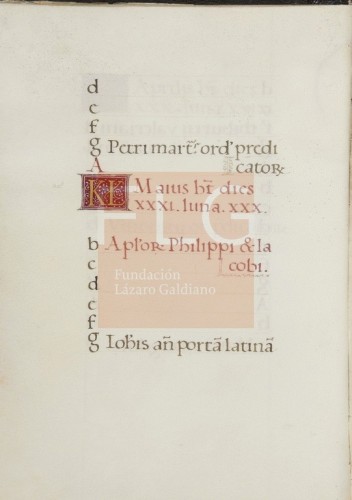 d
e
f
g Petri mart̃. ord̕ predi
catoꝝ
A
KL Maius ht̃ dies
XXXI. luna. XXX.
b Aplõꝝ Philippi & Ia
c cobi.
d
e
f
g Iohis añ portã latinã
FLG
Fundación
Lázaro Galdiano